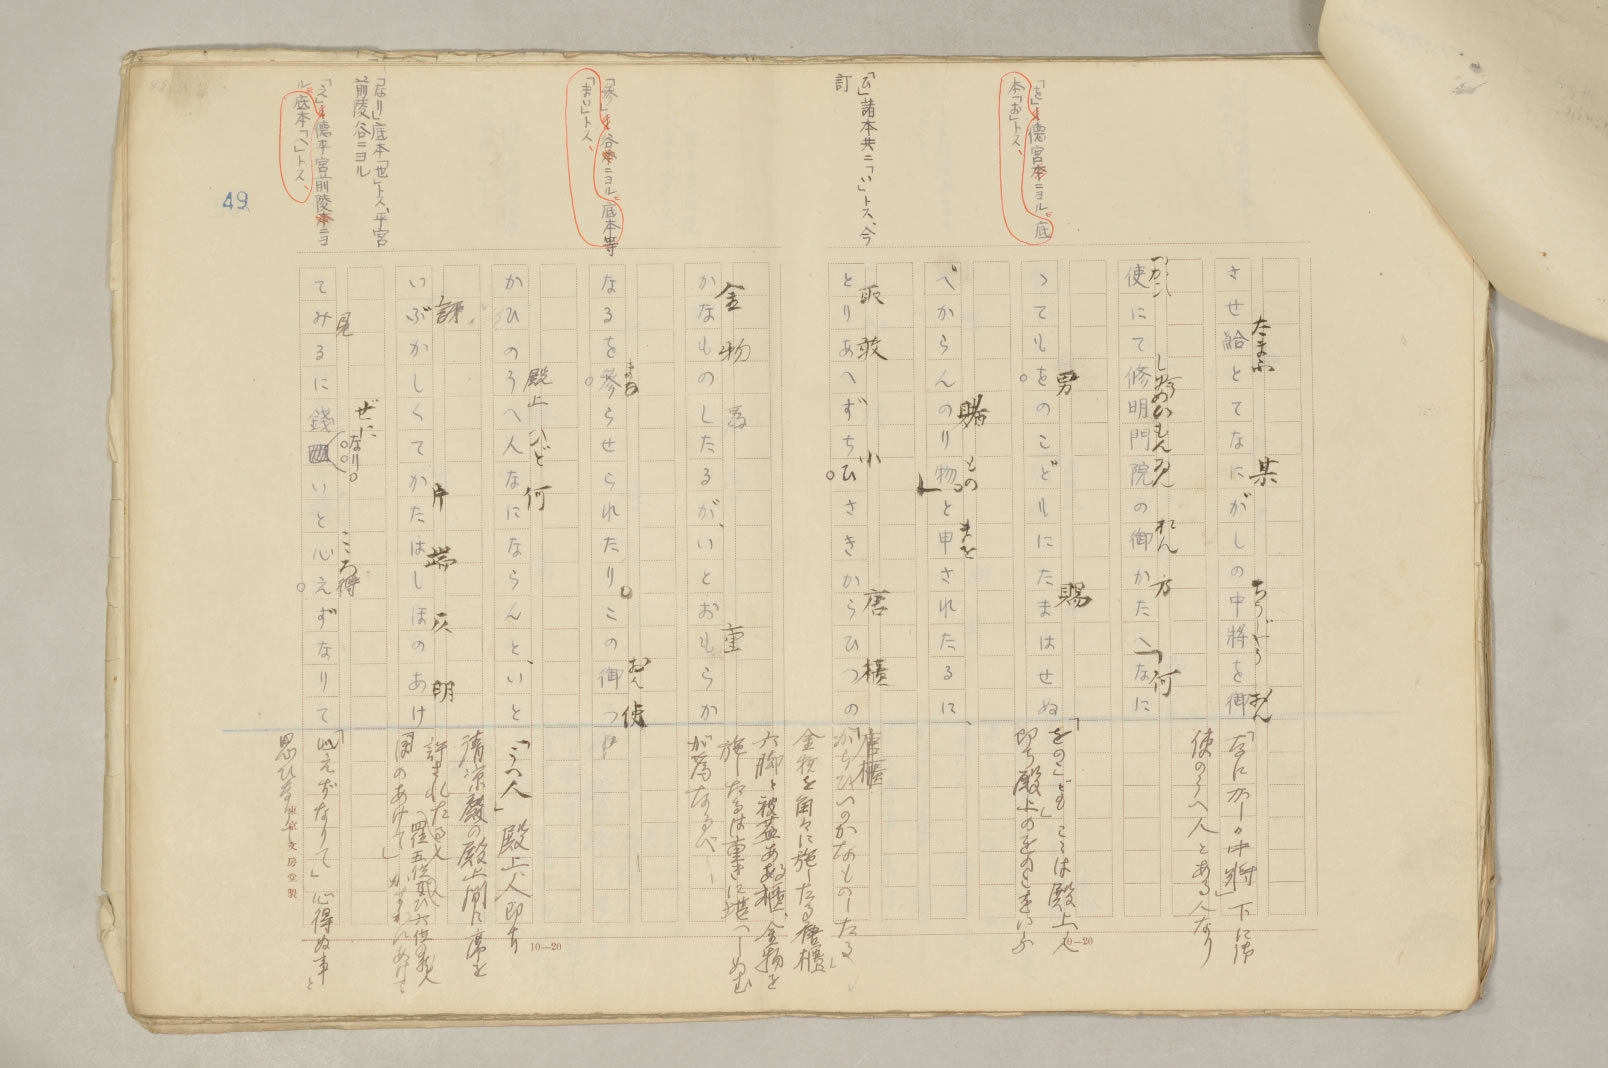 「を」ヲ德宮本ニヨル。底
本「お」トス、
「ひ」諸本共ニ「い」トス、今
訂
「参」ヲ谷本ニヨル。底本等
「まい」トス、
「なり」底本「也」トス、平宮
前陵谷ニヨル
「え」ヲ德平宮前陵本ニヨ
ル。底本「へ」トス、
49
たまふ 某 ちうじやう おん
させ給とてなにがしの中將を御
しゆめいもんゐん れん 方 何
使にて修明門院の御かたへ「なに
男 賜
つてもをのこどもにたまはせぬ
賭 もの まを
べからんのり物」と申されたるに、
取敢 小 唐櫃
とりあへずちひさきからひつの
金物 為 重
かなものしたるが、いとおもらか
まゐ おん使
なるを参らせられたり。この御つ
殿上 何
かひのうへ人なにならんと、いと
訝 片端 仄明
いぶかしくてかたはしほのあけ
見 ぜに なり こころ得
てみるに錢 いと心えずなりて
「なにがしの中將」下に御
使のうへ人とある人なり
「をのこども」ここは殿上人
即ち殿上のをのこをいふ
唐櫃
「からひつのかなものしたる」
金物を角々に施したる唐櫃
六脚と被蓋ある櫃、金物を
施したるは重きに堪へしめむ
が為なるべし
「うへ人」殿上人即ち
清凉殿の殿上間に席を
許されたる人
ほのあけて」かすかにあけて
「心えずなりて」心得ぬ事と
思ひなり
東京 文房堂製
10—20
10—20